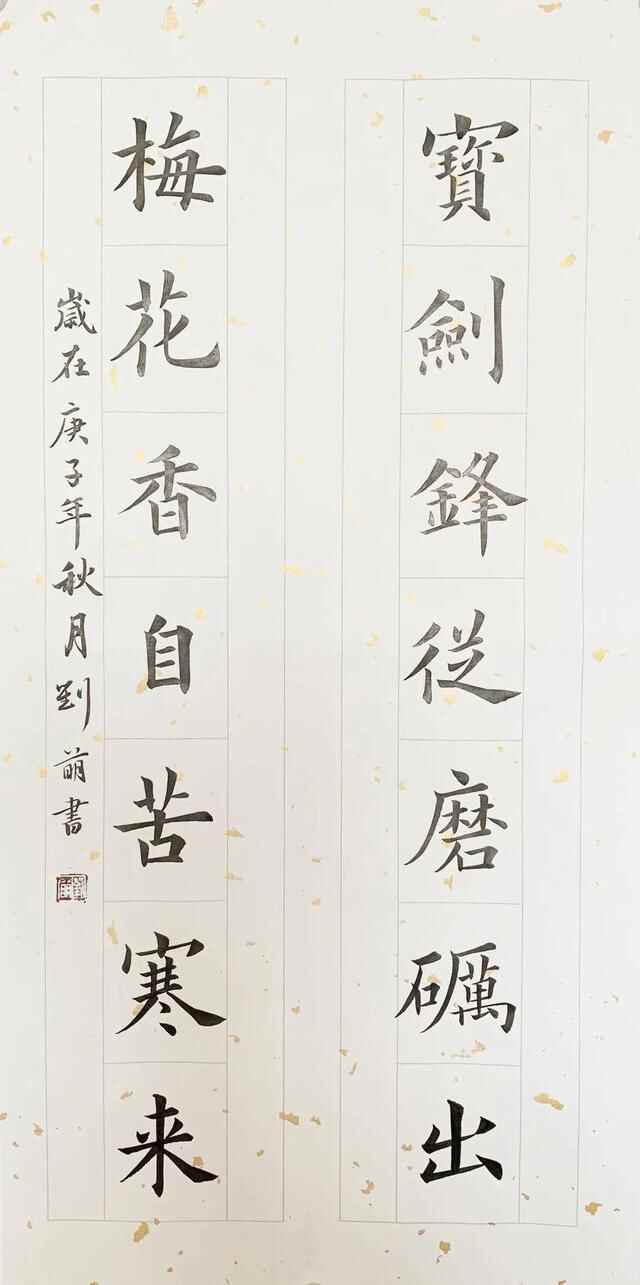 寶劍鋒從磨礪出
梅花香自苦寒来
歲在庚子年秋月劉萌書